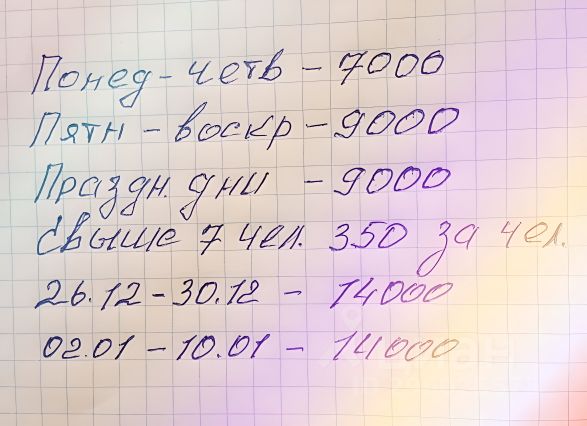 Понед - четв - 7000
Пятн - воскр - 9000
Праздн. дни - 9000
Свыше 7 чел. 350 за чел.
26.12 - 30.12 - 14000
02.01 - 10.01 - 14000